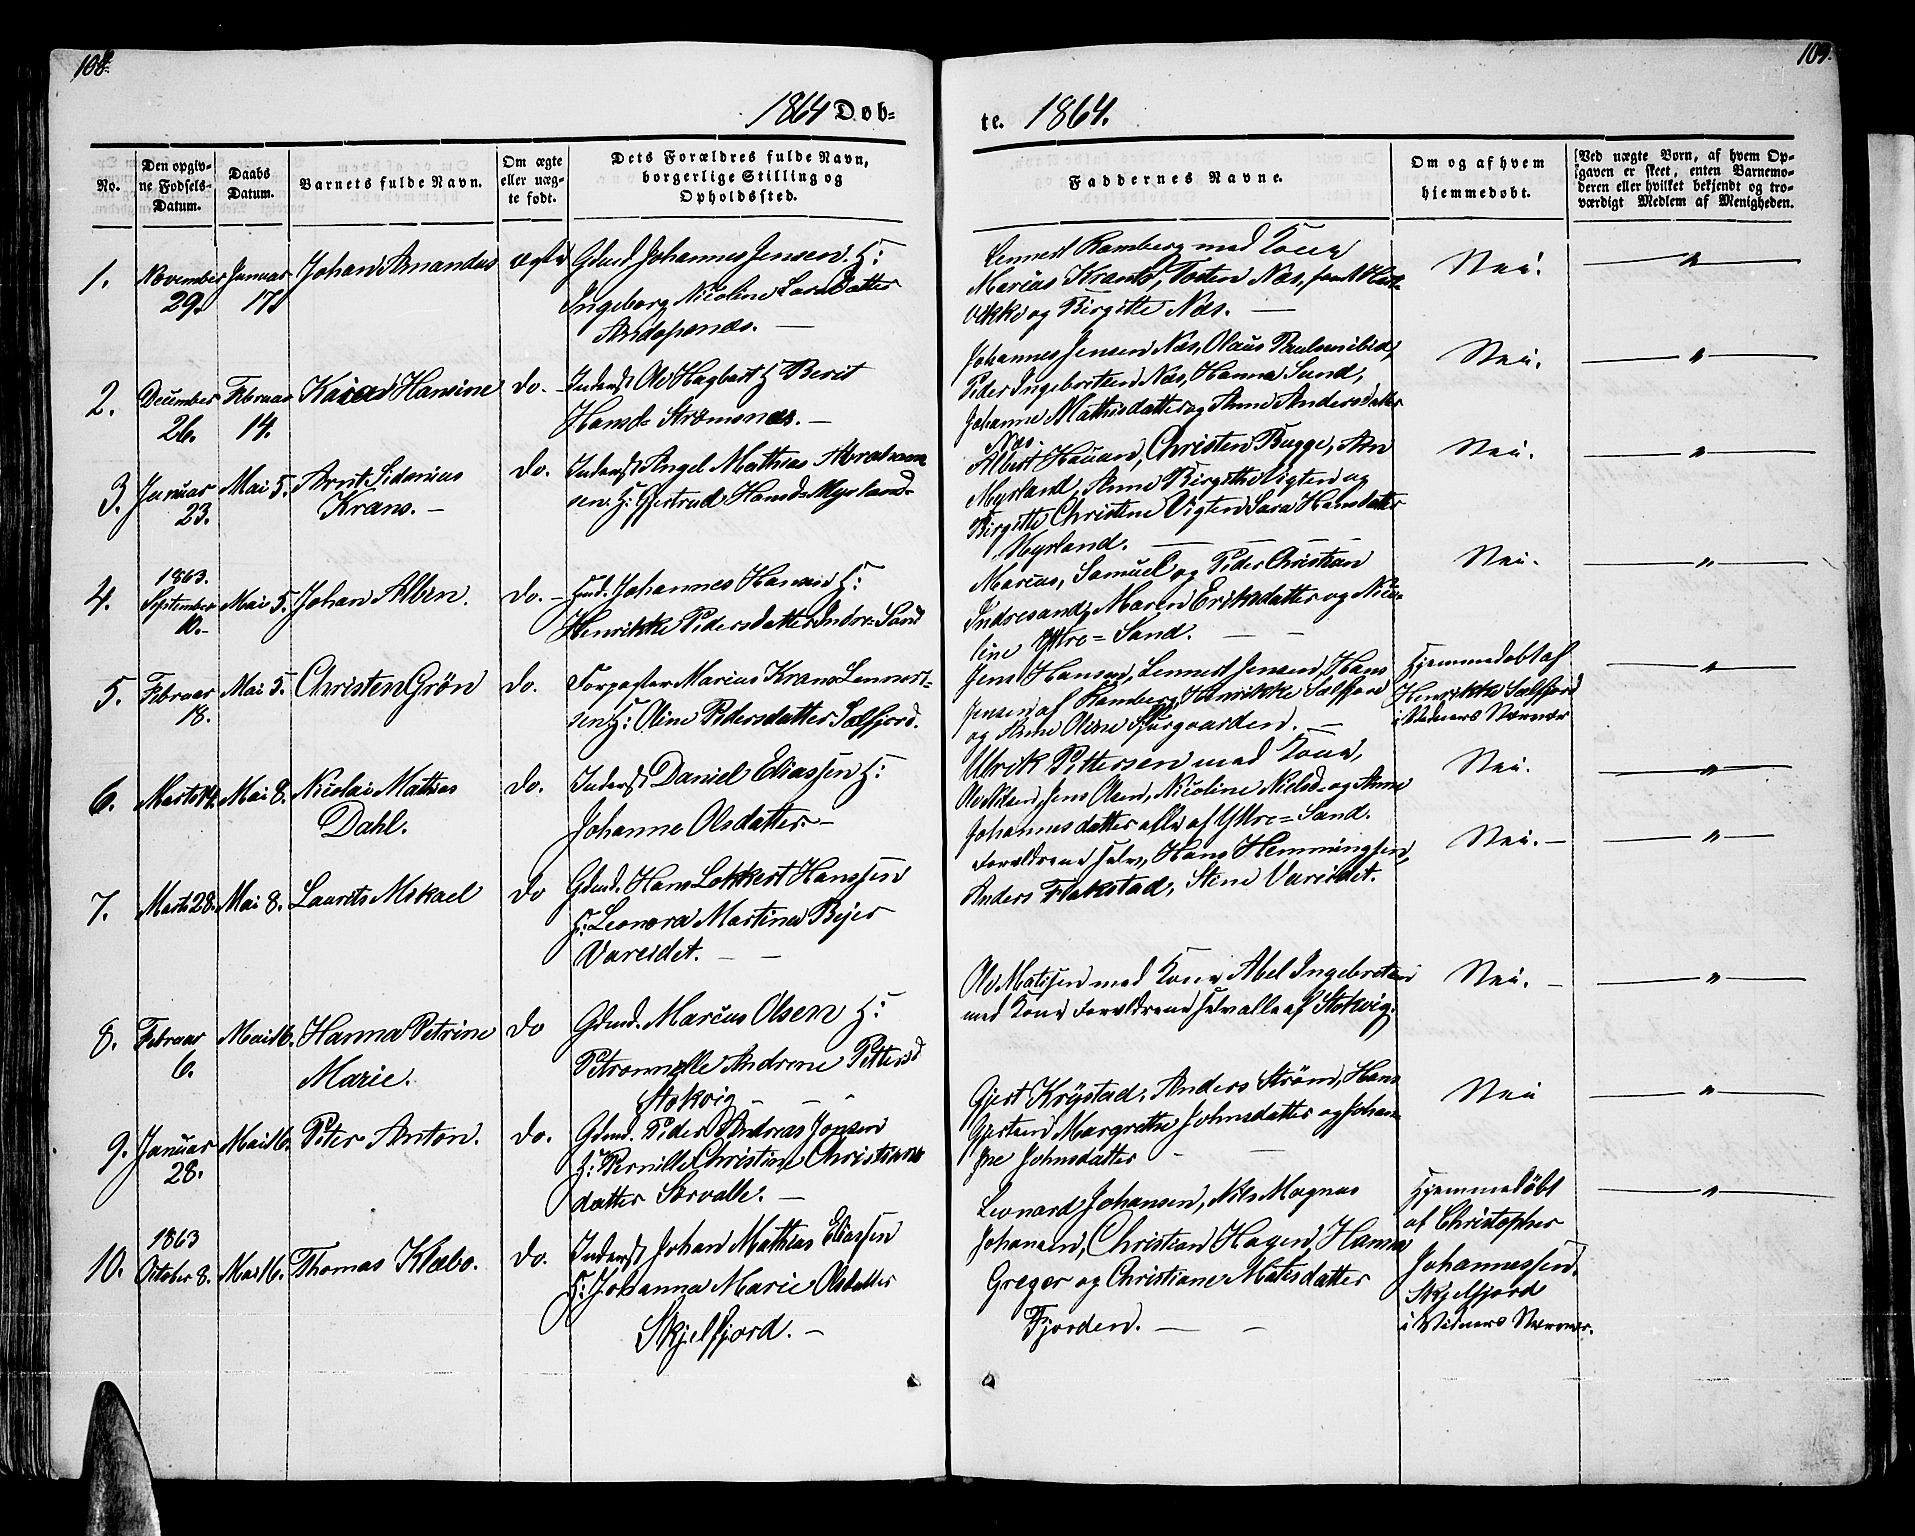 108.
1864 Døb=
No.
Den opgiv-
ne Fødsels-
Datum.
Daabs
Datum.
Barnets fulde Navn.
Om ægte
eller uæg-
te født.
Dets Forældres fulde Navn,
borgerlige Stilling og
Opholdssted.
1. November 29. Januar 17 Johan Amandus ægte Gdmd Johannes Jensen. H:
Ingeborg Nicoline Larsdatter
Andopsnæs. —
2. December 26. Februar 14. Kaia Hansine do. Inderst Ole Hagbart H Berit
Hansd. Strømsnæs. —
3. Januar 23. Mai 5. Arnt Sidenius
Krans. — do. Inderst Angel Mathias Abraham
sen. H: Gjertrud Hansd. Myrland.
4. 1863. September 10. Mai 5. Johan Albin. do. — Hmd. Johannes Hansen H:
Henrikke Pedersdatter Indre-Sand
5. Februar 18. Mai 5. Christen Grøn do. Forpagter Marius Krans Lennert-
sen H: Oline Pedersdatter Selfjord.
6. Marts 14. Mai 8. Nicolai Mathias
Dahl. do. Inderst Daniel Eliassen H:
Johanna Olsdatter. —
7. Marts 28. Mai 8. Laurits Mikael do Gdmd. Hans Lokkert Hanssen
H: Leonora Martina Bejer
Vareidet. — —
8. Februar 6. Mai 16. Hanna Petrine
Marie. do Gdmd. Marcus Olsen H:
Petronnelle Andrene Pettersd
Stokvig — —
9. Januar 28. Mai 16. Peter Anton. do. Gdmd. Peder Andreas Jonsen
H: Pernille Christine Christians
datter Sørvalle. —
10. 1863 October 8. Mai 16. Thomas Klæbo. do. Inderst Johan Mathias Eliassen
H: Johanna Marie Olsdatter
Skjelfjord. —
109.
te. 1864.
Faddernes Navne.
Om og af hvem
hjemmedøbt.
Ved uægte Børn, af hvem Op-
gaven er skeet, enten Barnemo-
deren eller hvilket bekjendt og tro-
værdigt Medlem af Menigheden.
Lennert Ramberg med Kone
Marius Krants, Tosten Næs,
og Birgitte Næs. — Nei. — " —
Johannes Jensen Næs, Olaus Paulsen ibid,
Peder Ingebortsen Næs, Hanna Sund,
Johanne Mathisdatter og Anne Andersdatter
Næs. Nei. — " —
Albert Hauan, Christen Bugge, Arn
Myrland, Anne Birgitte Vigten og
Birgitte Christine Vigten Sara Hansdatter
Myrland. — — — Nei. — " —
Marius, Samuel og Peder Christian
Indresand, Maren Eriksdatter og Nico-
line Yttre=Sand. — — Nei. — " —
Jens Hansen, Lennert Jensen, Hans
Jensen af Ramberg, Henrikke Selfjord
og Anne Oline Sjurgaarden. — Hjemmedøbt af
Henrikke Selfjord
i Vidners Nærvær — " —
Ulrik Pettersen med Kone,
Ole Nilsen, Jens Olsen, Nicoline Nielsd. og Anne
Johannesdatter alle af Yttre=Sand. Nei. — " —
Forældrene selv, Hans Hemmingsen,
Anders Flakstad, Stine Vareidet. Nei. — — " —
Ole Matisen med Kone Abel Ingebretsen
med Kone Forældrene selv alle af Stokvig. Nei. — — " —
Gjert Krystad, Anders Strøm, Hans
Gjertsen Margrethe Johnsdatter og Johan-
ne Johnsdatter — — Nei — " —
Leonard Johansen, Nils Magnus
Johansen, Christian Hagen, Hanna
Greger og Christiane Matisdatter
Fjorden. — — Hjemmedøbt
af Christopher
Johannessen.
Skjelfjord
i Vidners Nærvær. — " —